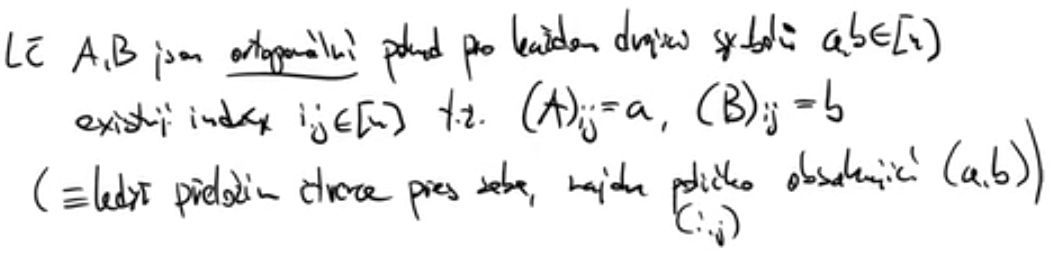 LČ A,B jsou ortogonální pokud pro každou dvojici symbolů a,b∈[n]
existují indexy i,j∈[n] t.ž. (A)ij=a, (B)ij=b
(≡když přeložím čtverce přes sebe, najdu políčko obsahující (a,b))
(i,j)